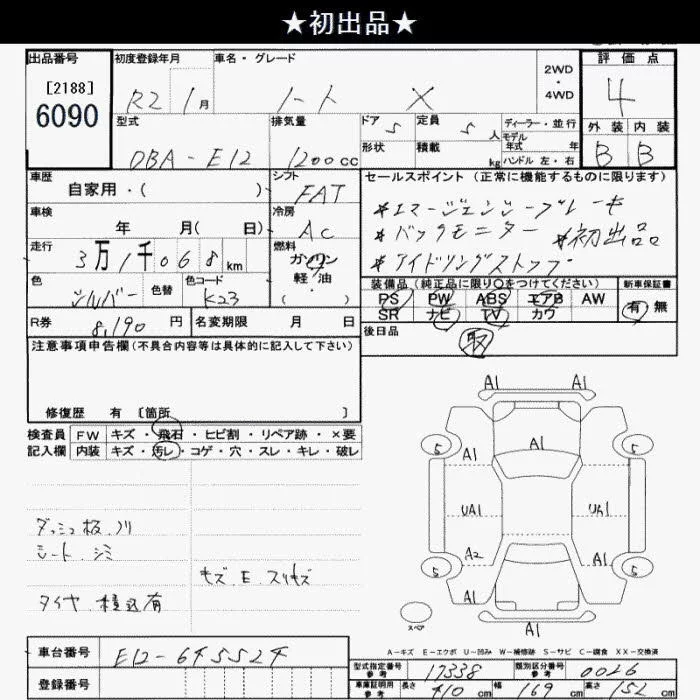 ★初出品★
出品番号
[2188]
6090
初度登録年月
R2 1月
車名・グレード
ノート X
2WD
・
4WD
評価点
4
外装 内装
B B
型式
DBA-E12
排気量
1200cc
ドア 5
定員 5人
形状
積載 kg
ディーラー・並行
モデル
年式 年
ハンドル 左・右
車歴
自家用・( )
シフト
FAT
車検
年 月( 日)
冷房
AC
走行
3万1千068km
燃料
ガソリン
軽油
( )
色
シルバー
色替
色コード
K23
R券
8,190円
名変期限 月 日
セールスポイント(正常に機能するものに限ります)
*エマージェンシーブレーキ
*バックモニター *初出品
*アイドリングストップ
装備品(純正品に限り○をつけてください)
PS PW ABS エアB AW
SR ナビ TV カワ
新車保証書
有 無
後日品
取
注意事項申告欄(不具合内容等は具体的に記入して下さい)
修復歴 有 [箇所 ]
検査員 FW キズ・飛石・ヒビ割・リペア跡・×要
記入欄 内装 キズ・汚レ・コゲ・穴・スレ・キレ・破レ
ダッシュ板.ノリ
シート.シミ
キズ.E.スリキズ
タイヤ.積込有
A1 A1
5 A1 5
A1
UA1 UA1
A2 A1
5 5
A1 A1
スペア
A1
A-キズ E-エクボ U-凹み W-補修跡 S-サビ C-腐食 XX-交換済
車台番号
E12-645524
登録番号
型式指定番号
参考
17338
類別区分番号
参考
0026
車庫証明用
参考
長さ 410cm 幅 169cm 高さ 152cm